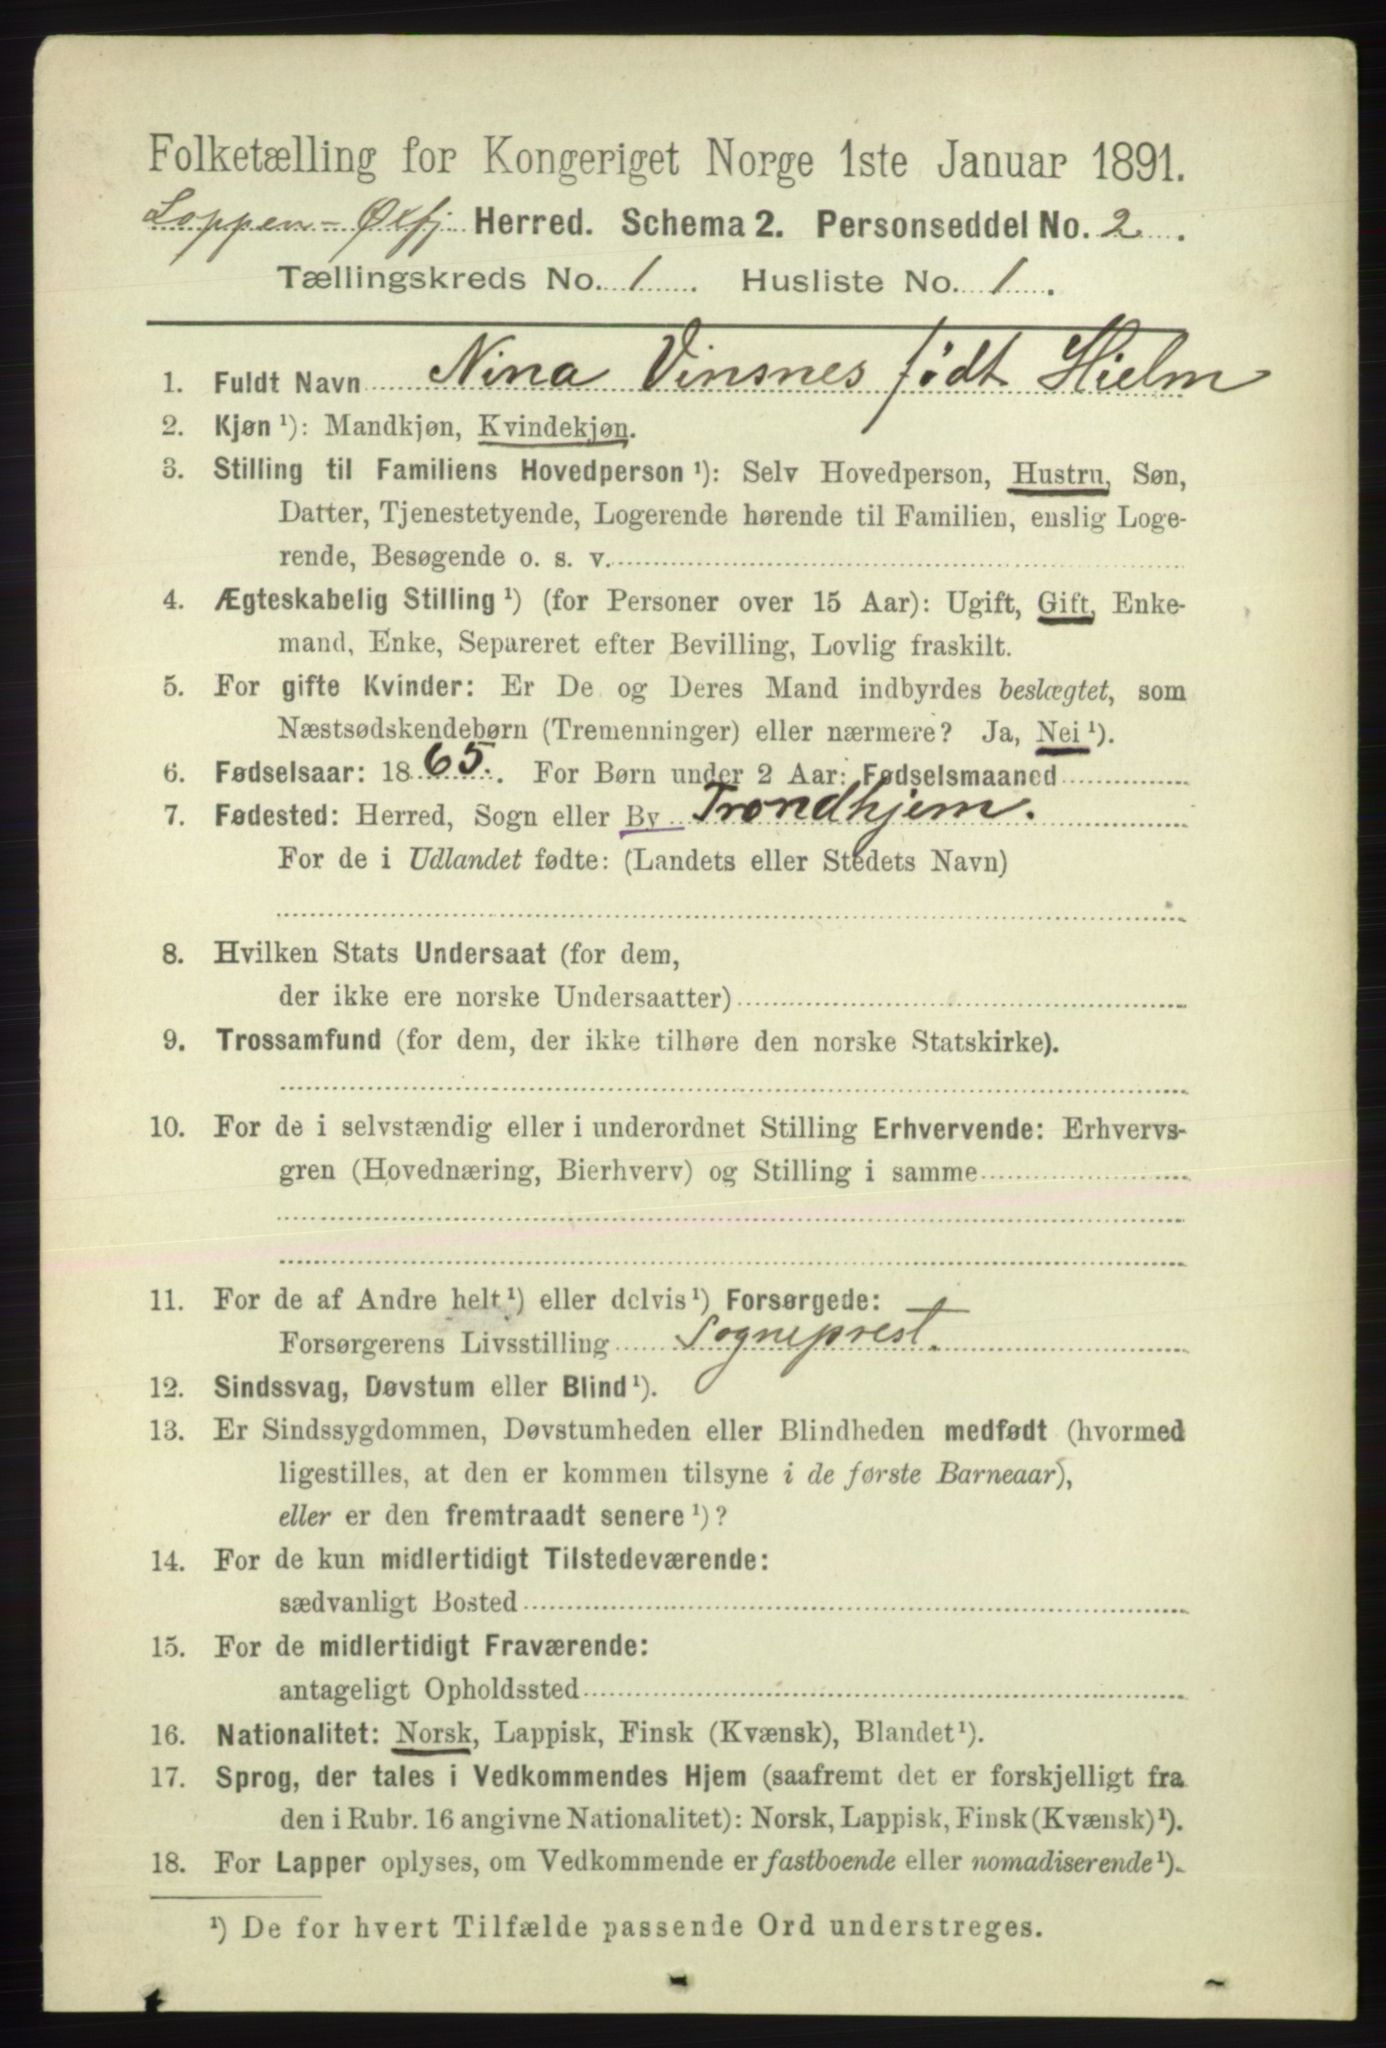 Folketælling for Kongeriget Norge 1ste Januar 1891.
Loppen - Øxfj. Herred. Schema 2. Personseddel No. 2.
Tællingskreds No. 1. Husliste No. 1.
1. Fuldt Navn Nina Vinsnes født Hielm
2. Kjøn ¹): Mandkjøn, Kvindekjøn.
3. Stilling til Familiens Hovedperson ¹): Selv Hovedperson, Hustru, Søn,
Datter, Tjenestetyende, Logerende hørende til Familien, enslig Loge-
rende, Besøgende o. s. v.
4. Ægteskabelig Stilling ¹) (for Personer over 15 Aar): Ugift, Gift, Enke-
mand, Enke, Separeret efter Bevilling, Lovlig fraskilt.
5. For gifte Kvinder: Er De og Deres Mand indbyrdes beslægtet, som
Næstsødskendebørn (Tremenninger) eller nærmere? Ja, Nei ¹).
6. Fødselsaar: 1865. For Børn under 2 Aar: Fødselsmaaned
7. Fødested: Herred, Sogn eller By Trondhjem.
For de i Udlandet fødte: (Landets eller Stedets Navn)
8. Hvilken Stats Undersaat (for dem,
der ikke ere norske Undersaatter)
9. Trossamfund (for dem, der ikke tilhøre den norske Statskirke).
10. For de i selvstændig eller i underordnet Stilling Erhvervende: Erhvervs-
gren (Hovednæring, Bierhverv) og Stilling i samme
11. For de af Andre helt ¹) eller delvis ¹) Forsørgede:
Forsørgerens Livsstilling Sogneprest.
12. Sindssvag, Døvstum eller Blind ¹).
13. Er Sindssygdommen, Døvstumheden eller Blindheden medfødt (hvormed
ligestilles, at den er kommen tilsyne i de første Barneaar),
eller er den fremtraadt senere ¹)?
14. For de kun midlertidigt Tilstedeværende:
sædvanligt Bosted
15. For de midlertidigt Fraværende:
antageligt Opholdssted
16. Nationalitet: Norsk, Lappisk, Finsk (Kvænsk), Blandet ¹).
17. Sprog, der tales i Vedkommendes Hjem (saafremt det er forskjelligt fra
den i Rubr. 16 angivne Nationalitet): Norsk, Lappisk, Finsk (Kvænsk) ¹).
18. For Lapper oplyses, om Vedkommende er fastboende eller nomadiserende ¹).
¹) De for hvert Tilfælde passende Ord understreges.